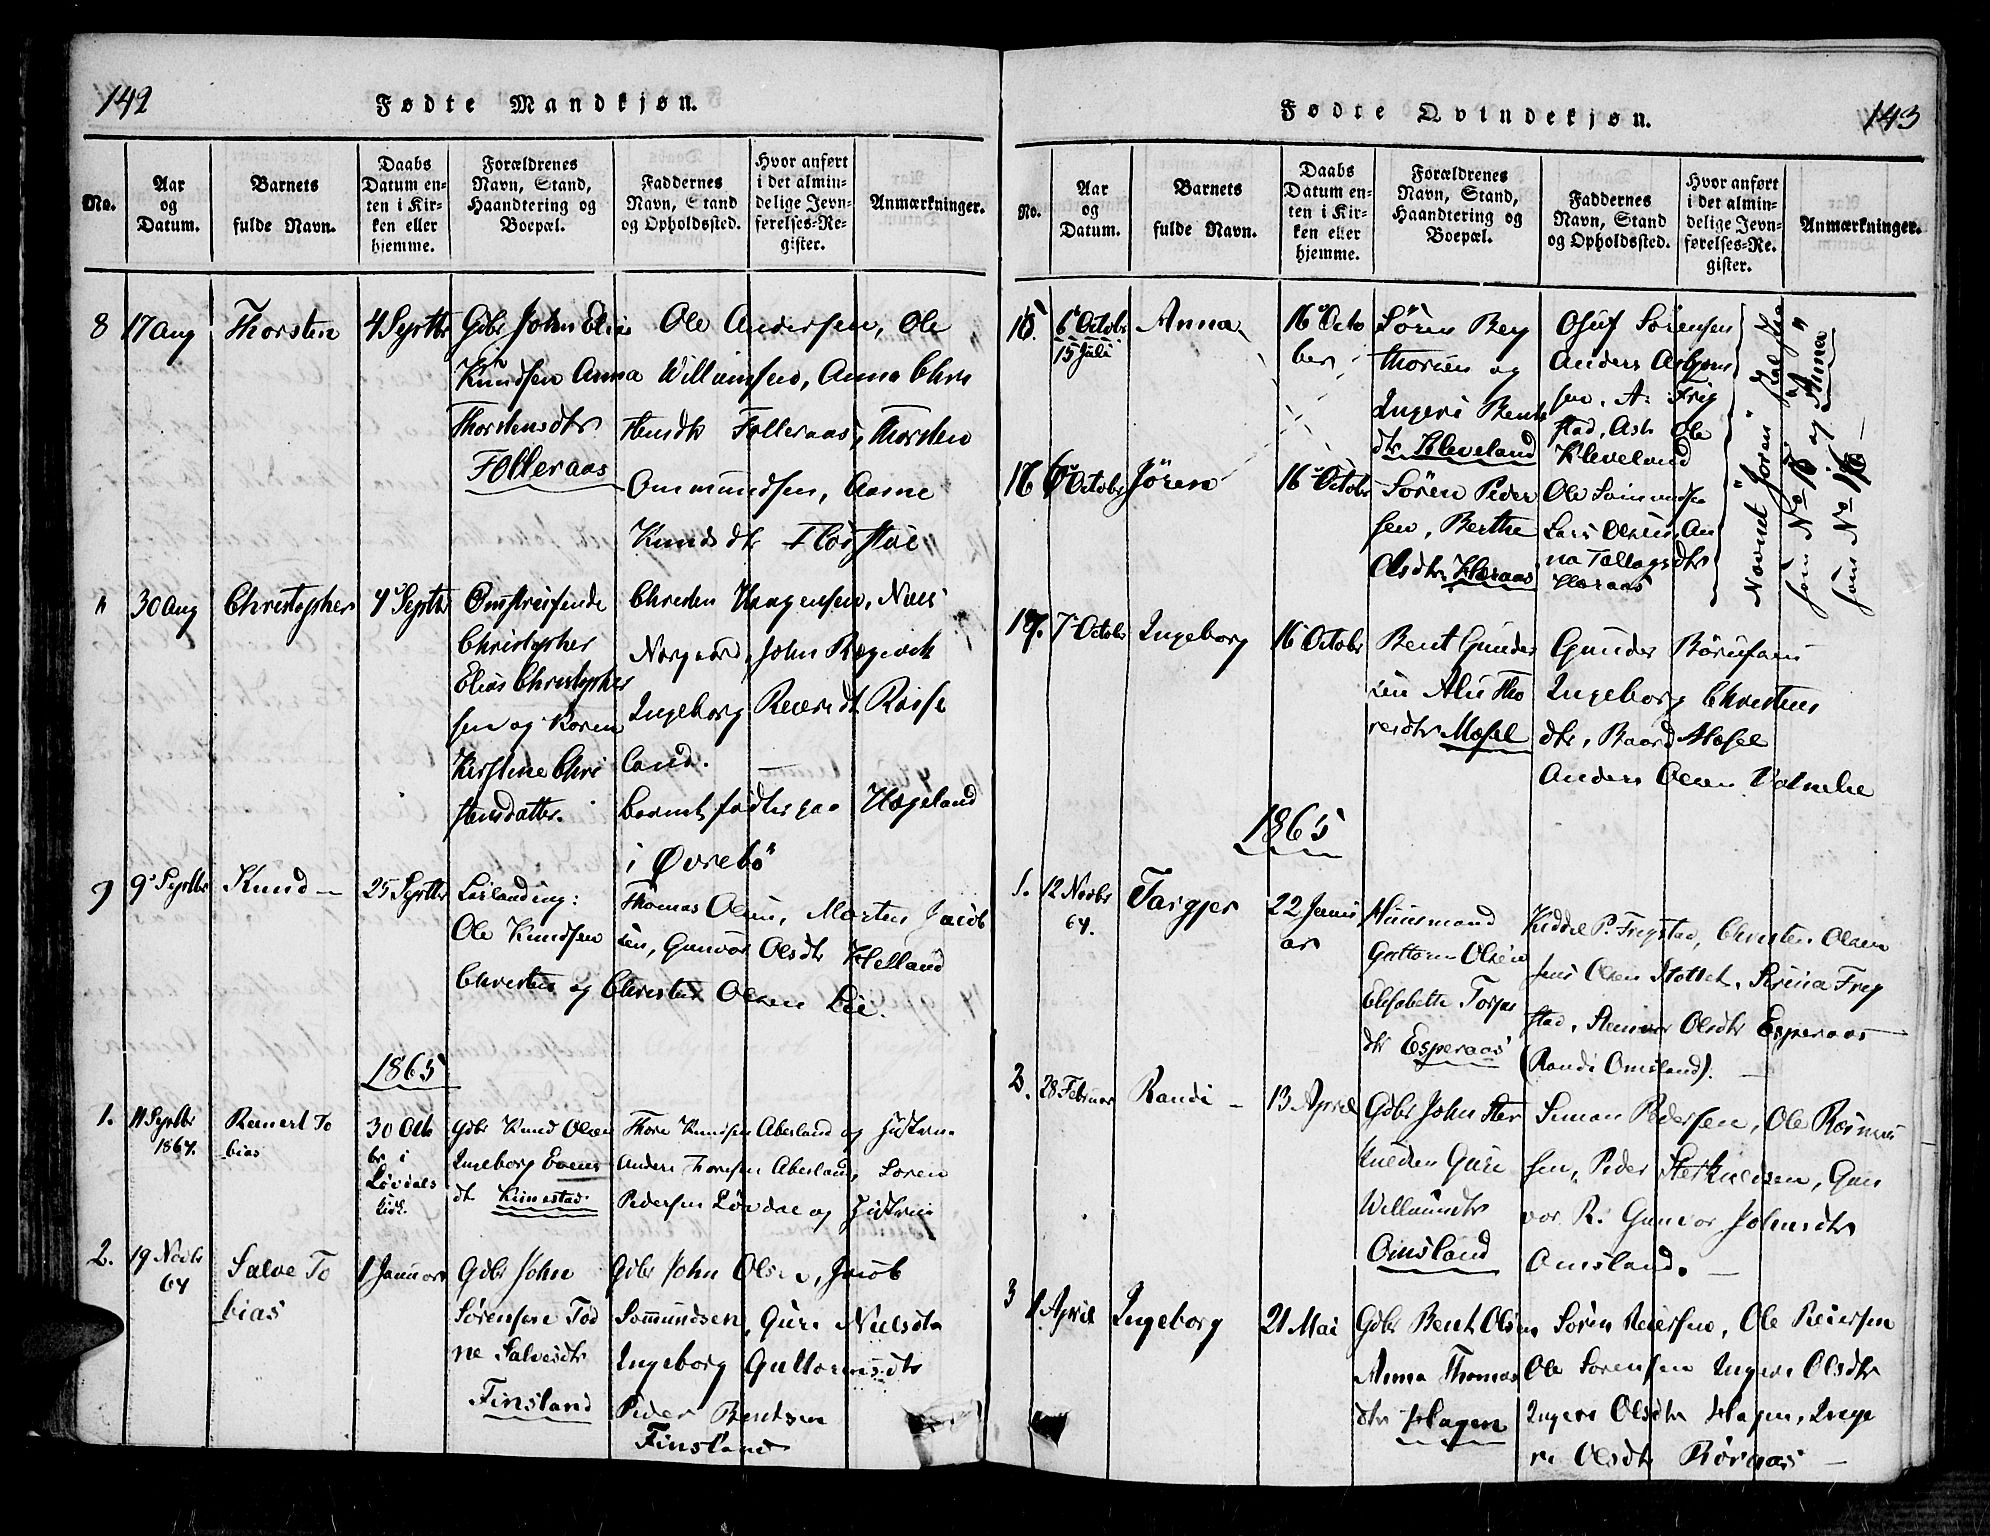 142
Fødte Mandkjøn.
No.
Aar
og
Datum.
Barnets
fulde Navn.
Daabs
Datum en-
ten i Kir-
ken eller
hjemme.
Forældrenes
Navn, Stand,
Haandtering og
Boepæl.
Faddernes
Navn, Stand
og Opholdssted.
Hvor anført
i det almin-
delige Jevn-
førelses-Re-
gister.
Anmærkninger.
8
17 Aug
Thorsten
4 Septbr
Gdbr John Elias
Knudsen Anna
Thorstensdtr
Folleraas
Ole Andersen, Ole
Willumsen, Anna Chri
stensdtr Folleraas, Thorsten
Ommundsen, Aasne
Knudsdtr
"
30 Aug
Christopher
4 Septbr
Omstreifende
Christopher
Elias Christopher
sen og Karen
Kirstine Chri
stensdatter.
Christen Haagensen, Niels
John
Ingeborg
land.
Barnet født paa Hægeland
i Øvrebø
9
9 Septbr
Knud
25 Septbr
Ole Knudsen
Christens og
Thomas Olsen, Morten Jacob
sen, Gunvor Olsdtr Helland
Christen Olsen Lie.
1865
1.
11 Septbr
1864.
Reinert To
bias
30 Octo
br i
Løvdals
Kirk.
Gdbr Knud Olsen
Ingeborg Evens
dtr Kimestad
Thore Knudsen Aberland og Hustru
Anders Thoresen Aberland, Søren
Pedersen Løvdal og Hustru
2.
19 Novbr
64
Salve To
bias
1 Januar
Gdbr John
Sørensen Tod
ne Salvesdtr
Finsland
Gdbr John Olsen, Jacob
Sommundsen, Guri Nielsdtr
Ingeborg Guttormsdtr
Peder Bentsen
Finsland
143
Fødte Qvindekjøn.
No.
Aar
og
Datum.
Barnets
fulde Navn.
Daabs
Datum en-
ten i Kir-
ken eller
hjemme.
Forældrenes
Navn, Stand,
Haandtering og
Boepæl.
Faddernes
Navn, Stand
og Opholdssted.
Hvor anført
i det almin-
delige Jevn-
førelses-Re-
gister.
Anmærkninger.
15.
6 Octobr
15 Juli
Anna
16 Octo
ber
Søren Bey
thorsen og
Ingeri Bents
dtr Kleveland
Osuf Sørensen
Anders Asbjørn
sen, A. Frig
stad, Ask Ole
Kleveland
16
6 Octobr
Jøren
16 Octobr
Søren Peder
sen, Berthe
Olsdtr Haraas
Ole Simundsen
Lars Olsen, An
na Tallagsdtr
Haraas
Navnet "Jøren" skal staa
som No 15 og "Anna"
som No 16
17.
7 Octobr
Ingeborg
16 Octobr
Bent Gunder
sen Alis Tho
resdtr Mæsel
Gunder Børufsen
Ingeborg Christens
dtr, Baard Mæsel
Anders Olsen Vatnelie
1865
1.
12 Novbr
64.
Targjer
22 Janu
ar
Huusmand
Guttorm Olsen
Elisabeth Torjus
dtr Esperaas
Kiddel P. Frigstad, Christen Olsen
Jens Olsen Stallet, Serina Frig
stad, Stenvor Olsdtr Esperaas
(Randi Omsland).
2.
28 Februar
Randi
13 April
Gdbr John Ster
kuldsen Guri
Willumsdtr
Omsland
Simon Pedersen, Ole Rasmus
sen, Peder Sterkuldsen, Gun
vor R. Gunvor Johnsdtr
Omsland.
3
1 April
Ingeborg
21 Mai
Gdbr Bent Olsen
Anna Thomas
dtr Hagen
Søren Reiersen, Ole Reiersen
Ole Sørensen Ingeri Olsdtr
Ingeri Olsdtr Hagen, Inge
ri Olsdtr Rørnaas